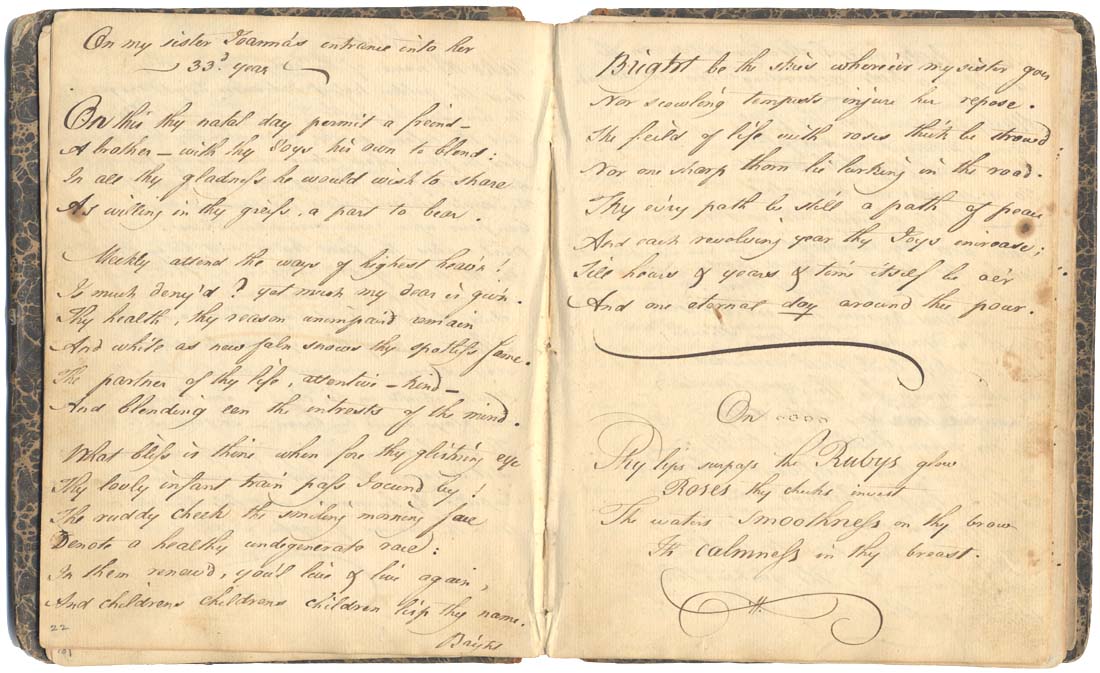 On my sister Joanna's entrance into her
33d. year
On this thy natal day permit a freind –
A brother – with thy Joys his own to blend:
In all thy gladness he would wish to share
As willing in thy griefs, a part to bear.
Meekly attend the ways of highest heav'n!
Is much deny'd? yet much my dear is giv'n.
Thy health, thy reason unimpaird remain
And while as new faln snows thy spotless fame.
The partner of thy life, attentive – kind –
And blending een the intrests of the mind.
What bliss is thine when fore thy glistning eye
Thy lovly infant train pass Jocund by!
The ruddy cheek the smiling morning face
Denote a healthy undegenerate race:
In them renew'd, you'll live & live again,
And childrens childrens children lisp thy name.
22
Bright
101
Bright be the skies where'er my sister goes
Nor scowling tempests injure her repose.
The feild of life with roses thick be strow'd
Nor one sharp thorn lie lurking in the road.
Thy ev'ry path be still a path of peace
And each revolving year thy Joys increase;
Till hours & years & time itself be o'er
And one eternal day around thee pour.
On oooo
Thy lips surpass the Rubys glow
Roses thy cheeks invest
The waters smoothness on thy brow
Th calmness in thy breast.
H.